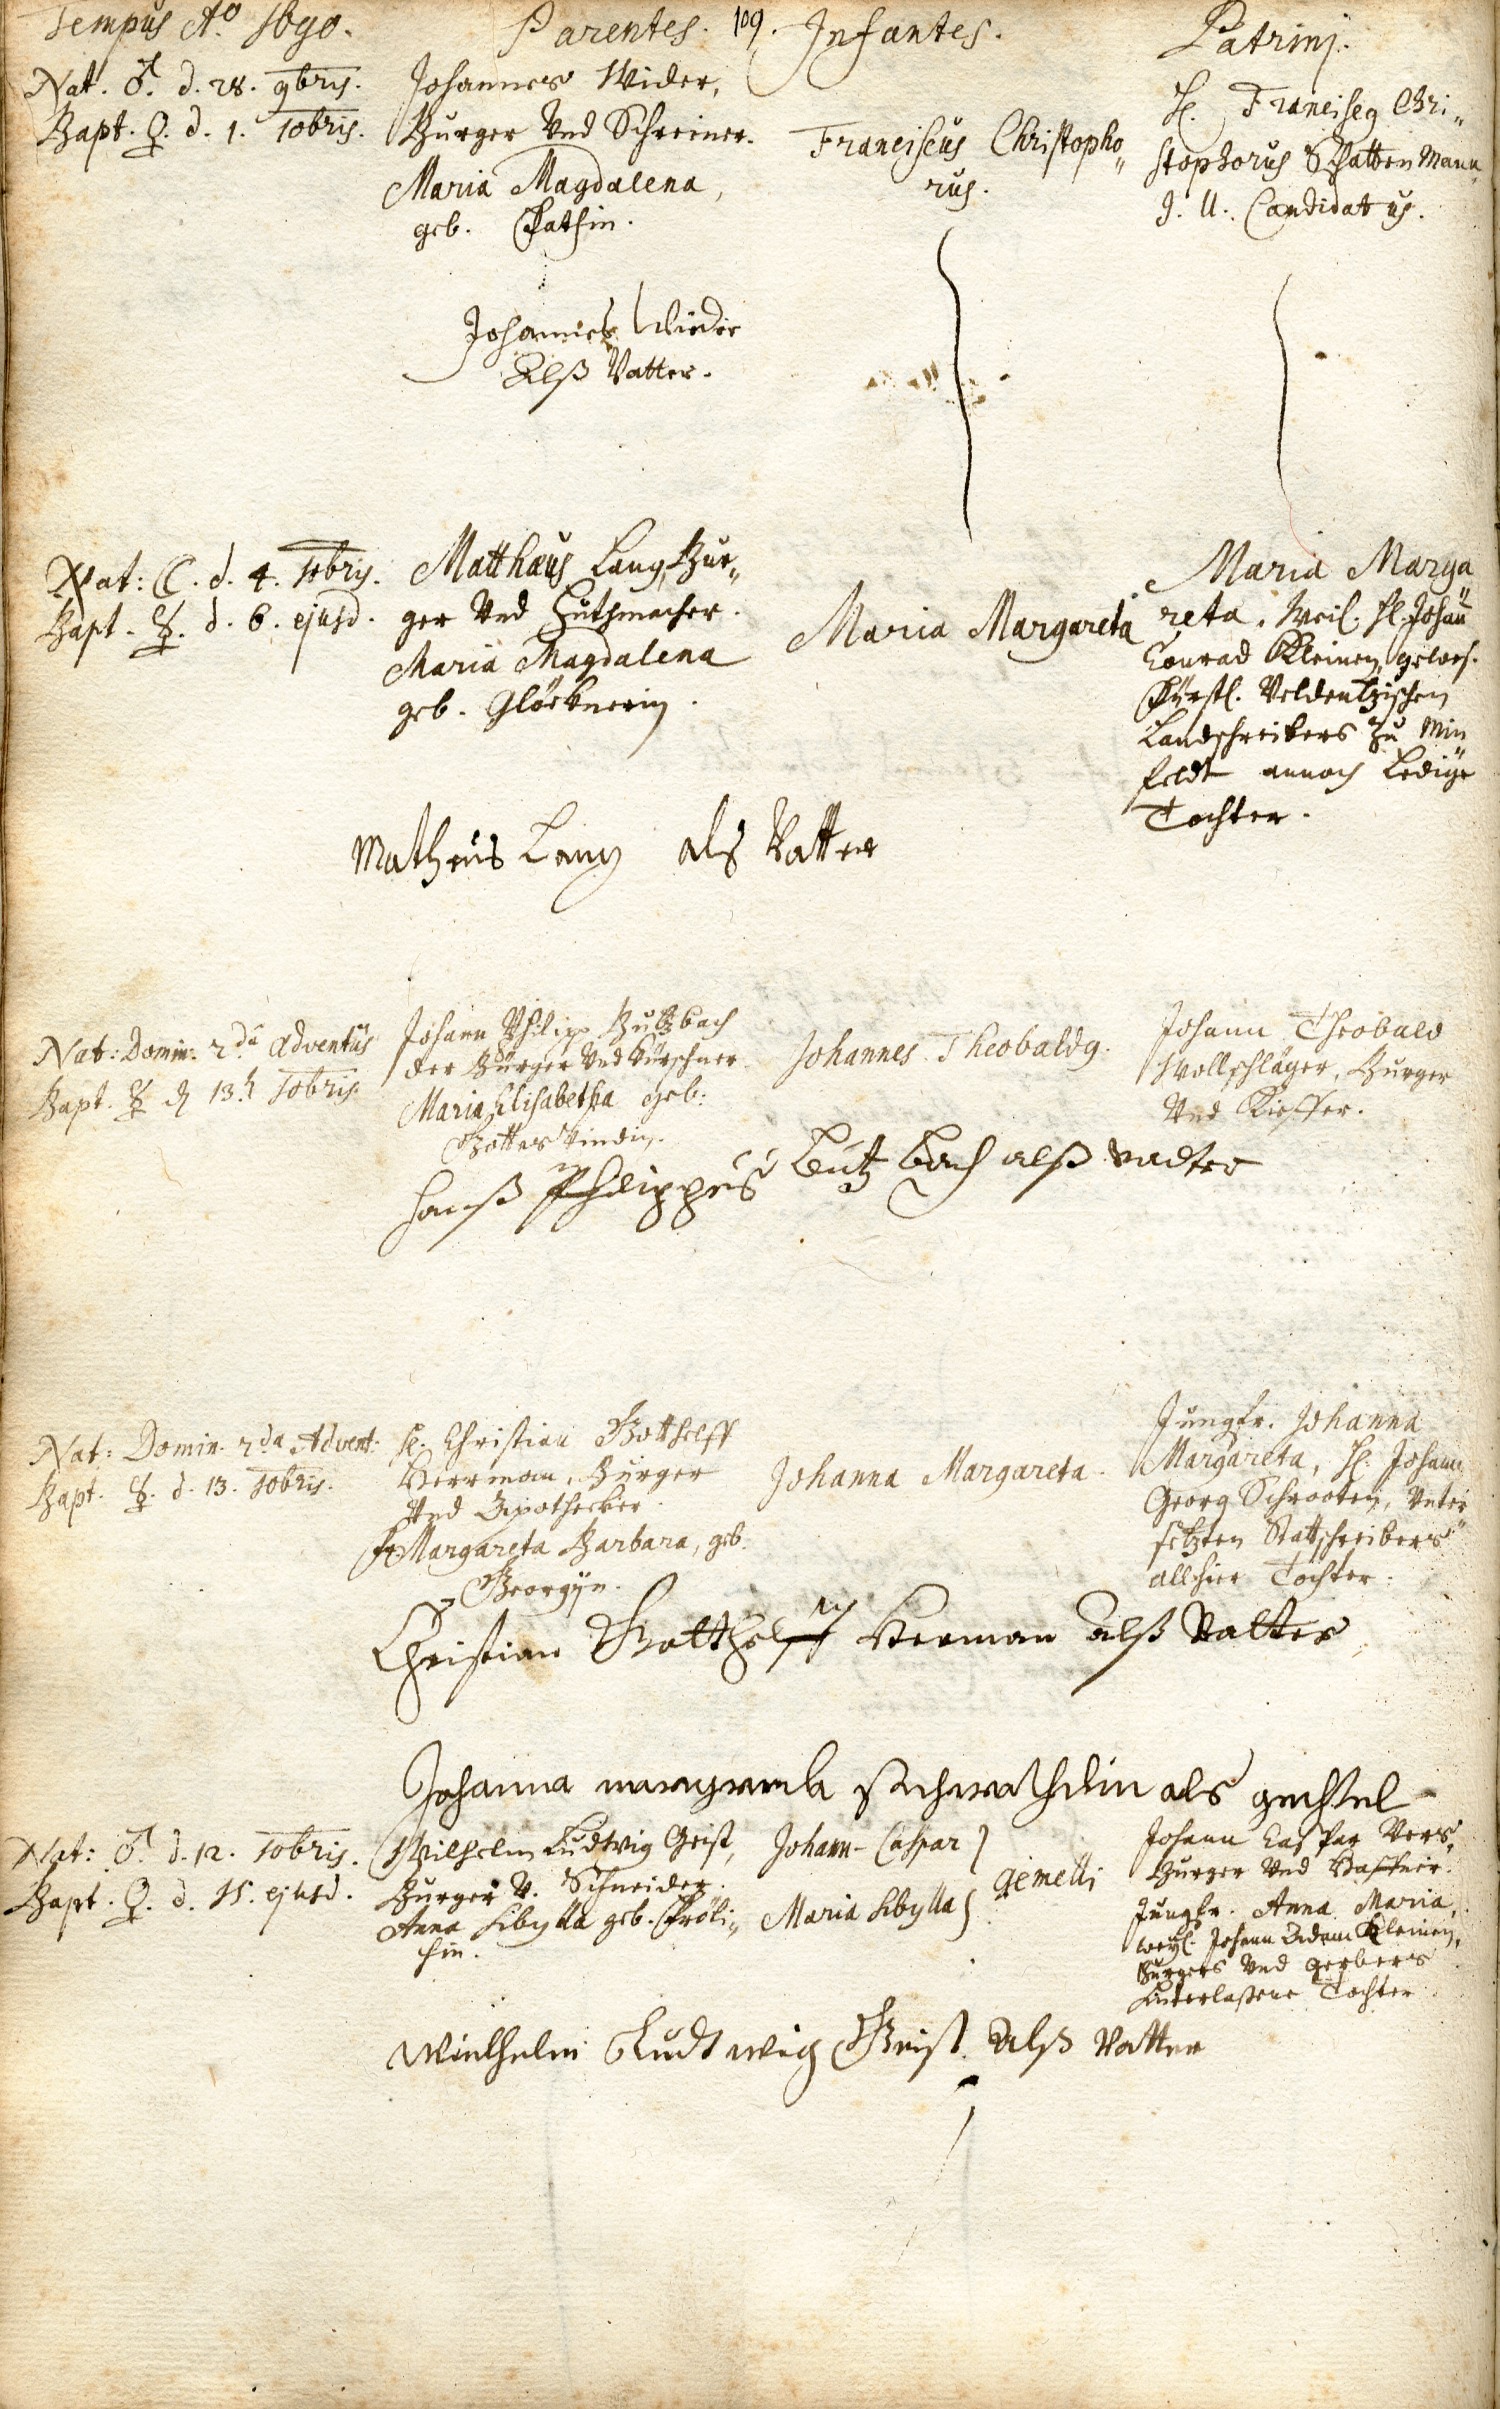 Tempus Aº 1690.
Parentes.
109.
Infantes.
Patrinj.
Nat. ♂. d. 28. 9bris.
Bapt. ♀. d. 1. 10bris.
Johannes Wider,
Burger Vnd Schreiner.
Maria Magdalena,
geb.
Franciscus Christopho„
rus.
H. Franciscq Chri„
stophorus Schattenmann
J. U. Candidatus.
Johannes Wieder
Alß Vatter.
Nat: ☾. d. 4. 10bris.
Bapt. ☿. d. 6. ejusd.
Matthæus Lang, Bur„
ger Vnd Huthmacher.
Maria Magdalena
geb. Glöcknerin.
Maria Margareta
Maria Marga
reta, Weil. H. Johañ
Conrad Kleinen, gewes.
Fürstl. Veldentzischen
Landschreibers Zu Min
feldt annoch Ledige
Tochter.
Matheus Lang als Vatter
Nat: Domin. 2da Adventus
Bapt. ☿ d 13. 10bris.
Johann Philipp Butzbach
der Burger Vnd Kürschner
Maria Elisabetha geb:
Johannes Theobaldq.
Johann Theobald
Wollschläger, Burger
Vnd Kieffer.
Hanß Philippus Butz bach alß vadter
Nat: Domin. 2da Advent:
Bapt. ☿. d. 13. 10bris.
H. Christian Gotthelff
Herrman, Burger
Vnd Apothecker.
Fr. Margareta Barbara, geb.
Georgyn.
Johanna Margareta.
Jungfr. Johanna
Margareta, H. Johann
Georg Schrooten,
Stattschreibers
allhier Tochter.
Christian Gotthelff Herman alß Vatter
Johanna als
Nat: ♂. d. 12. 10bris.
Bapt. ♀. d. 15. ejusd.
Wilhelm Ludwig Geist,
Burger V. Schneider.
Anna Sibylla geb. Fröli„
chin.
Johann-Caspar }
Maria Sibylla }
gemelli
Johann Caspar
Burger Vnd Haffner.
Jungfr. Anna Maria,
weyl. Johann Adam Kleinen,
Burgers Vnd gerbers
hinterlaßene Tochter
Wielhelm Ludtwig Geist Alß Vatter